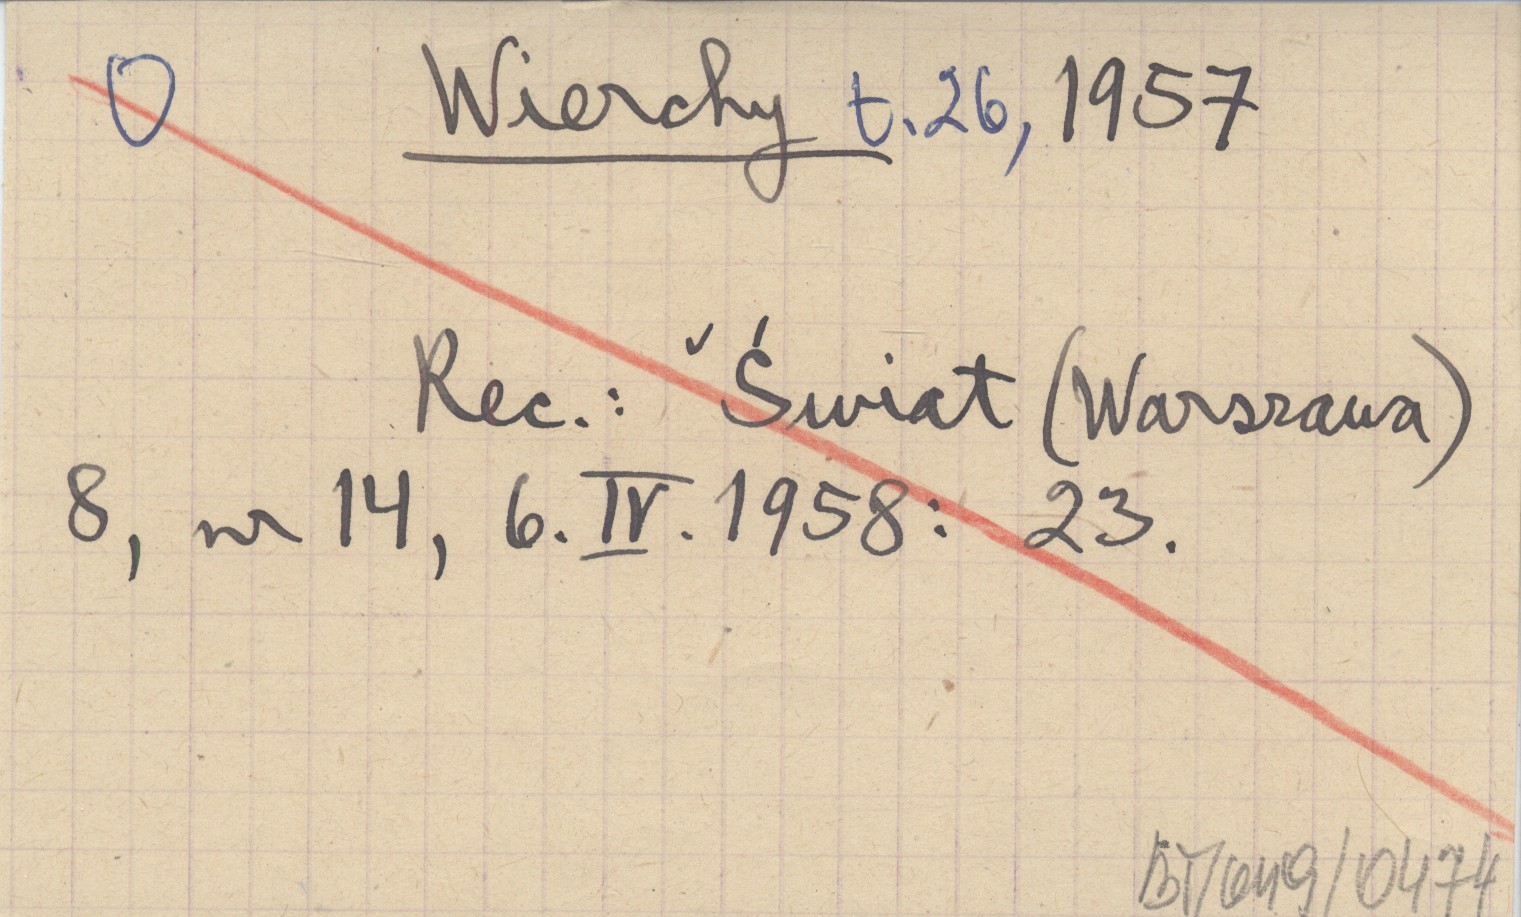 O Wierchy t. 26, 1957
Rec.: ˇ Świat (Warszawa)
8, nr 14, 6. IV. 1958: 23.
BT/649/0474